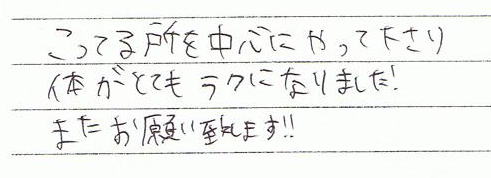 こってる所を中心にやって下さり
体がとてもラクになりました!
またお願い致します!!